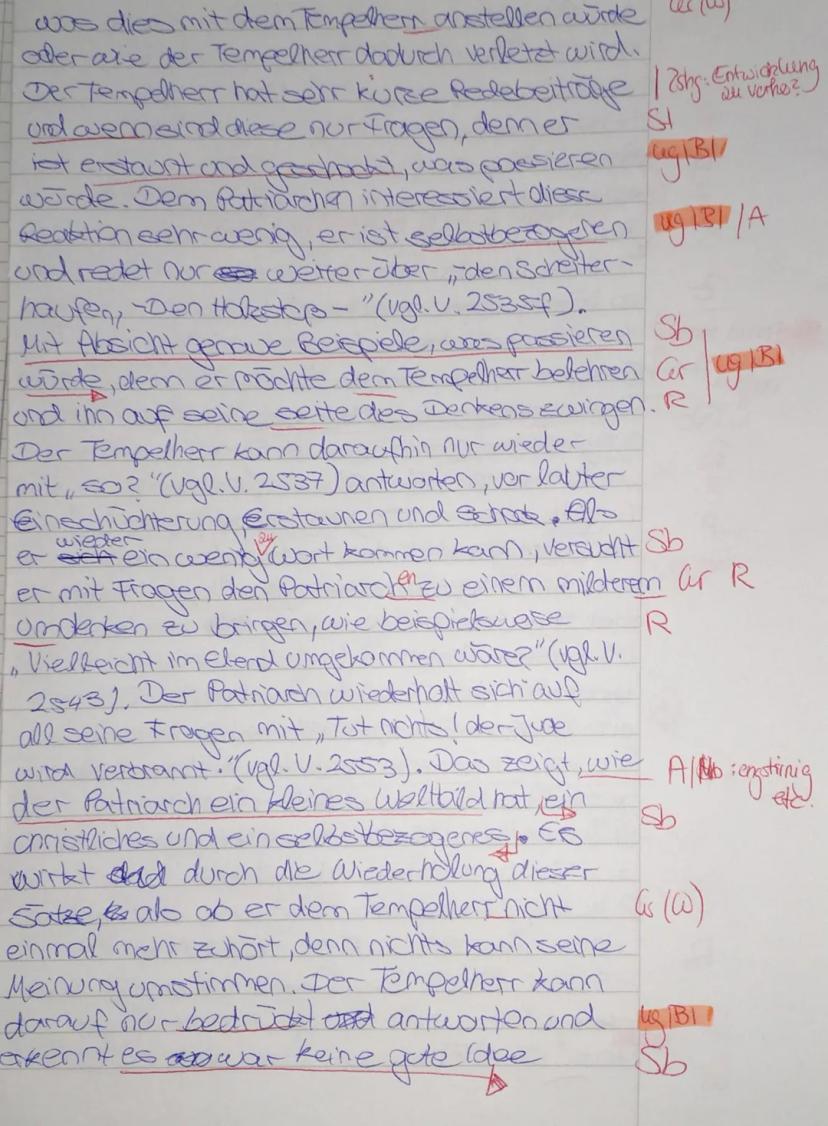 was dies mit dem Tempelherrn anstellen würde Gr (W)
oder wie der Tempelherr dadurch verletzt wird.
Der Tempelherr hat sehr kurze Redebeiträge | Zshg: Entwicklung zu vorher?
und wenn sind diese nur Fragen, denn er St
ist erstaunt und geschockt, was passieren ug |B|
würde. Dem Patriarchen interessiert diese
Reaktion sehr wenig, er ist selbstbezogen ug |B| / A
und redet nur weiter über „den Scheiter-
haufen, -Den Holzstoß - " (vgl. V. 2535f).
Mit Absicht genaue Beispiele, was passieren Sb
würde, denn er möchte dem Tempelherr belehren Gr | ug |B|
und ihn auf seine seite des Denkens zwingen. R
Der Tempelherr kann daraufhin nur wieder
mit „so?" (vgl. V. 2537) antworten, vor lauter
Einschüchterung, Erstaunen und Schock. Als
er wieder ein wenig zu Wort kommen kann, versucht Sb
er mit Fragen den Patriarchen zu einem milderem Gr R
Umdenken zu bringen, wie beispielsweise R
„Vielleicht im Elend umgekommen wäre?" (vgl. V.
2543). Der Patriarch wiederholt sich auf
all seine Fragen mit „Tut nichts! der Jude
wird verbrannt." (vgl. V. 2553). Das zeigt, wie A / : engstirnig etc.
der Patriarch ein kleines Weltbild hat, ein Sb
christliches und ein selbstbezogenes. Es
wirkt durch die Wiederholung dieser
Sätze, als ob er dem Tempelherr nicht Gr (W)
einmal mehr zuhört, denn nichts kann seine
Meinung umstimmen. Der Tempelherr kann
darauf nur bedrückt antworten und ug |B|
erkennt es war keine gute Idee Sb